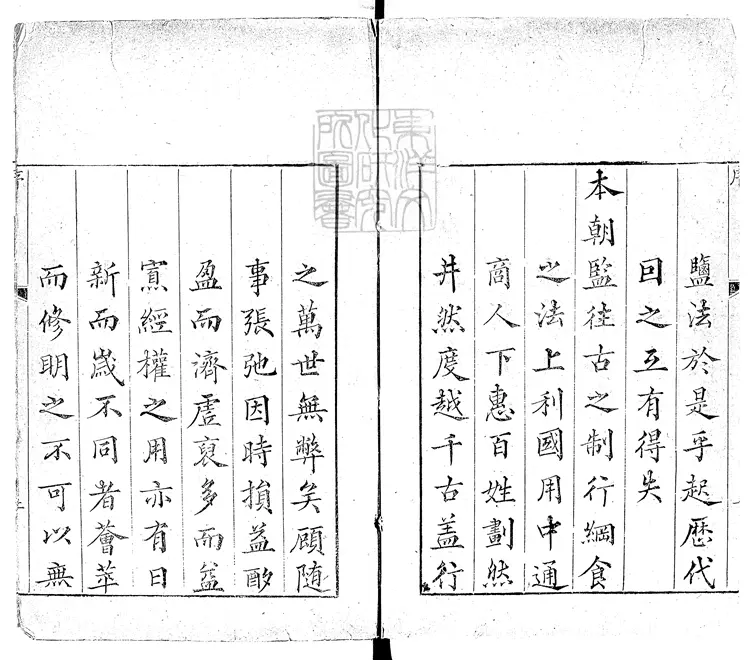 鹽法於是乎起歷代
因之互有得失
本朝監徃古之制行綱食
之法上利國用中通
商人下惠百姓劃然
井然度越千古盖行
之萬世無弊矣顧隨
事張弛因時損益酌
盈而濟虛裒多而益
寡經權之用亦有日
新而歲不同者薈萃
而修明之不可以無
序
東洋文化研究所圖書